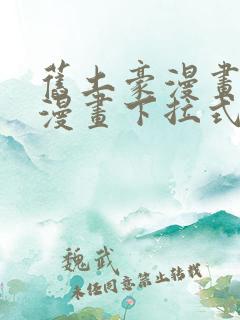 舊土豪漫畫
漫畫下拉式
魏武
未经同意禁止转载